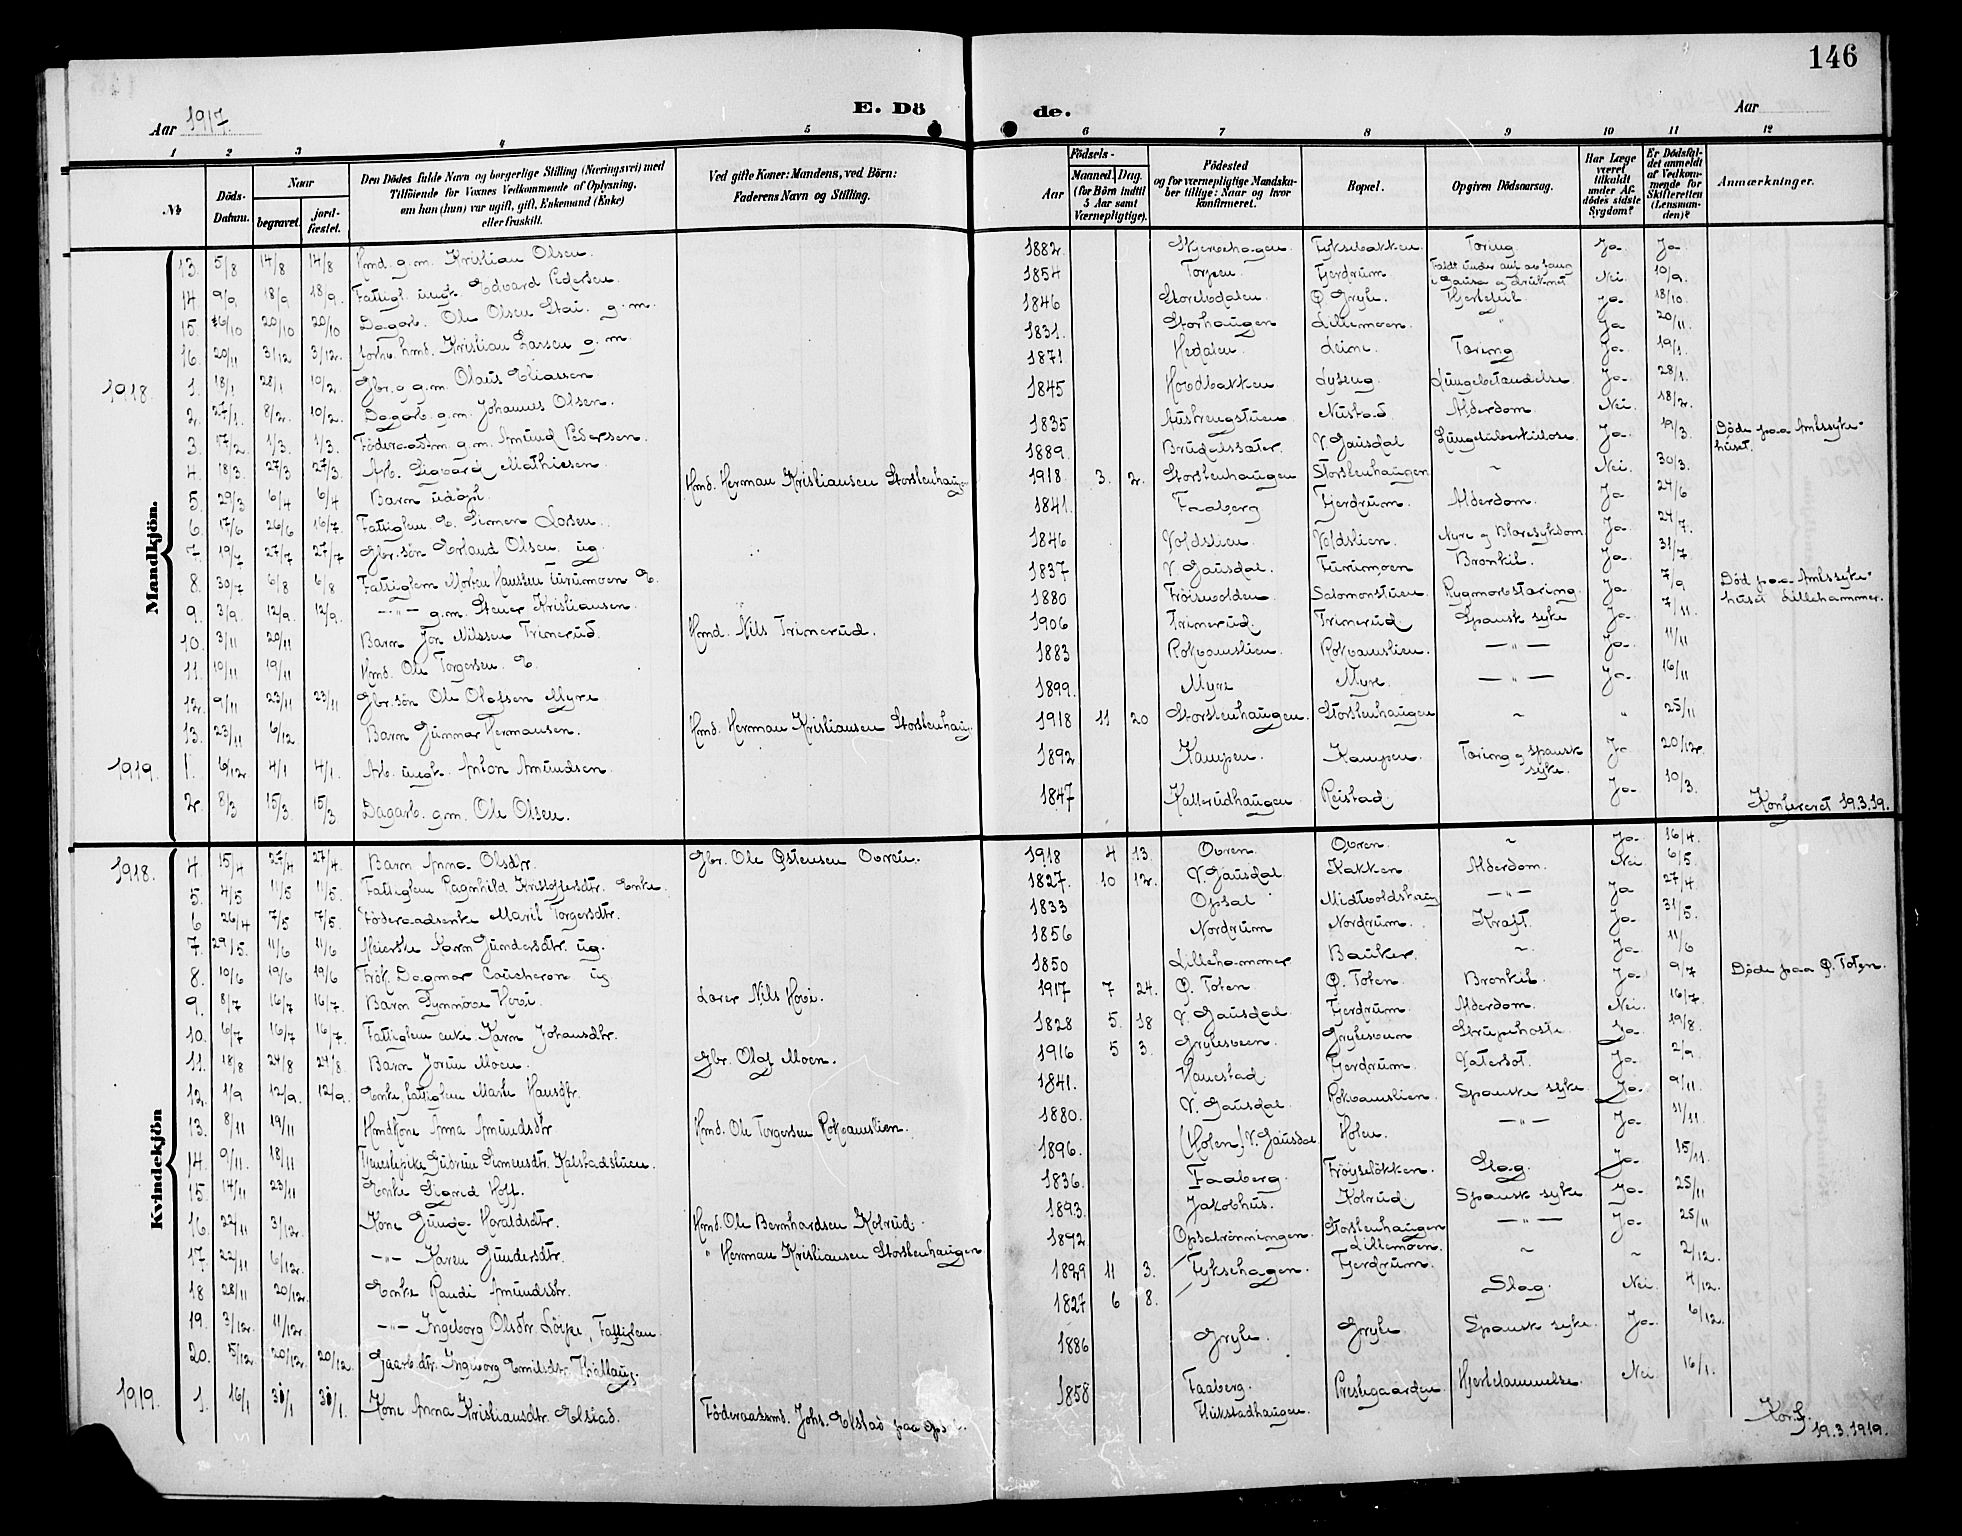 146
Aar 1917. E. Dö de. Aar
1 2 3 4 5 6 7 8 9 10 11 12
№ Döds-Datum. Naar begravet. jord-fæstet. Den Dödes fulde Navn og borgerlige Stilling (Næringsvei) med Tilföiende for Voxnes Vedkommende af Oplysning, om han (hun) var ugift, gift, Enkemand (Enke) eller fraskilt. Ved gifte Koner: Mandens, ved Börn: Faderens Navn og Stilling. Födsels- Aar Maaned. Dag. (for Börn indtil 5 Aar samt Værnepligtige). Födested og for værnepligtige Mandskaber tillige: Naar og hvor konfirmeret. Bopæl. Opgiven Dödsaarsag. Har Læge været tilkaldt under Afdödes sidste Sygdom? Er Dödsfaldet anmeldt af Vedkommende for Skifteretten (Lensmanden)? Anmærkninger.
Mandkjön.
13. 5/8 14/8 14/8 Hmd. g.m. Kristian Olsen. 1882. Skjervehagen. Fyksebakken. Tæring. Ja. Ja.
14. 9/9 18/9 18/9. Fattigl. ungk. Edvard Pedersen. 1854 Torpen Fjerdrum. Nei. 10/9.
15. 16/10 20/10 20/10 Dagarb. Ole Olsen Stai. g.m. 1846 Storebdalen. Ø. Gryte. Hjertefeil. Ja. 18/10.
16. 20/11 3/12 3/12. forh. hmd. Kristian Larsen g.m. 1831. Storhaugen Lillemoen. " Ja 20/11.
1918. 1. 18/1 28/1 10/2. Gbr. g.m. Olaus Eliassen 1871 Hedalen. Leine. Tæring Ja. 19/1.
2. 27/1. 8/2. 10/2. Dagarb. g.m. Johannes Olsen. 1845 Hovdbakken Lyseng. Lungebetændelse. Ja. 28/1.
3. 17/2. 1/3. 1/3. Föderaadsm. g.m. Amund Pedersen. 1835 Nustad Alderdom Nei. 18/2.
4. 18/3. 27/3 27/3. Arb. Sigvard Mathiesen. 1889. Brudelssæter. V. Gausdal Lungetuberkulose. Ja. 19/3. Døde paa Amtssykehuset.
5. 29/3 6/4 6/4 Barn udøpt. Hmd. Herman Kristiansen Storstenhaugen 1918. 3. 2. Storstenhaugen Storstenhaugen ~ Nei. 30/3.
6. 17/6 26/6 16/7 Fattiglem E. Simen Larsen. 1841. Faaberg Fjerdrum. Alderdom. Ja 24/6
7. 19/7 27/7 27/7 Gbr. sön Erland Olsen. ug. 1846 Voldslien. Voldslien. Nyre og Blæresykdom Ja. 24/7.
8. 30/7 6/8 6/8 Fattiglem Morten Hanssen Furumoen E. 1837 V. Gausdal. Furumoen Bronkit. Ja. 31/7
9. 3/9. 12/9. 12/9. —"— g.m. Stener Kristiansen. 1880 Fröisvolden. Salomonstuen. Rygmarvstæring. Ja 7/9 Død paa Amtssykehuset Lillehammer.
10. 3/11 20/11 Barn Jon Nilssen Trinerud. Hmd. Nils Trinerud. 1906 Trinerud. Trinerud. Spansk syke Ja. 7/11.
11. 10/11 19/11 Hmd. Ole Torgersen. E. 1883 Rokvamslien. Rokvamslien. —"— Ja. 11/11
12. 9/11 23/11 23/11 Gbr. sön Ole Olafsen Myre 1899. Myre Myre. —"— Ja. 16/11
13. 23/11 6/12. Barn Gunnar Hermansen. Hmd. Herman Kristiansen Storstenhaug. 1918 11 20 Storstenhaugen. Storstenhaugen ~ " 25/11
1919. 1. 6/12. 4/1 4/1. Arb. ungk. Anton Amundsen 1892 Kampen. Kampen. Tæring og spansk syke. Ja 20/12.
2. 8/3 15/3 15/3 Dagarb. g.m. Ole Olsen. 1847 Kallerudhaugen Reistad. Ja. 10/3. Konfereret 19.3.19.
Kvindekjön
1918. 4. 15/4 27/4 27/4. Barn Anna Olsdtr. Gbr. Ole Østensen Ovren. 1918 4 13. Ovren. Ovren. ~ Ja. 16/4.
5. 4/5 11/5 11/5. Fattiglem Ragnhild Kristoffersdtr. Enke. 1827. 10 12. V. Gausdal Kakken Alderdom. Nei. 6/5.
6 26/4 7/5 7/5 Föderaadsenke Marit Torgersdtr. 1833 Opsal Midtvoldshaug —"— Ja 27/4.
7. 29/5. 11/6 11/6 Meierske Karn Gundersdtr. ug. 1856 Nordrum Nordrum. Kræft. Ja. 31/5.
8. 10/6 19/6 19/6 Frök. Dagmar Caucheron ug 1850 Lillehammer Bauker. ~ Ja. 11/6
9. 8/7 16/7 16/7. Barn Synnöve Hovi. Lærer Nils Hovi. 1917 7 24. Ø. Toten Ø. Toten. Bronkit. Ja. 9/7 Døde paa Ø. Toten.
10. 6/7 16/7 16/7. Fattiglem enke Karn Johansdtr. 1828 5. 18 V. Gausdal Fjerdrum. Alderdom. Nei. 16/7.
11. 18/8 24/8 24/8. Barn Jorun Moen. Gbr. Olaf Moen. 1916 5 3. Gryteveen Gryteveen Strupehoste. Ja. 19/8.
12. 1/9 12/9. 12/9. Enke, fattiglem Marte Hansdtr. 1841. Fjerdrum. Vatersot. Ja. 2/9.
13. 8/11 19/11 Hmdkone Anna Amundsdtr. Hmd. Ole Torgersen Rokvamslien. 1880. V. Gausdal. Rokvamslien. Spanske syke. Ja. 9/11.
14. 9/11. 18/11 Tjenestepike Gudrun Simensdtr. Kalstadstuen. 1896. (Holen) V. Gausdal Holen. —"— Ja 11/11.
15. 14/11 23/11 Enke Sigrid Hoff. 1836. Faaberg. Fröyselökken. Slag. Ja. 15/11.
16. 22/11 3/12. Kone Gunda Haraldsdtr. Hmd. Ole Bernhardsen Kolrud. 1893. Jakobhus. Kolrud Spansk syke Ja. 25/11
17. 22/11 6/12. —"— Karen Gundersdtr. " Herman Kristiansen Storstenhaugen 1892. Opsalrönningen. Storstenhaugen —"— Ja. 25/11
18 28/11 20/12. Enke Randi Amundsdtr. 1829 11 3. Fyksehagen. Lillemoen. ~ ~ 2/12.
19. 3/12. 11/12. —"— Ingeborg Olsdtr. Lörpe, Fattiglem 1827 6 8. Fjerdrum. Slag. Nei. 4/12.
20. 5/12. 20/12. 20/12. Gaardb.dtr. Ingeborg Emilsdtr. 1886 Gryte. Gryte. Spansk syke. Ja. 6/12.
1919. 1. 16/1 30/1 30/1. Kone Anna Kristiansdtr. Elstad. Föderaadsmd. Johs. Elstad paa 1858 Faaberg. Flukstadhaugen. Prestegaarden Hjertelammelse. Nei. 16/1.
Konf. 19.3.1919.